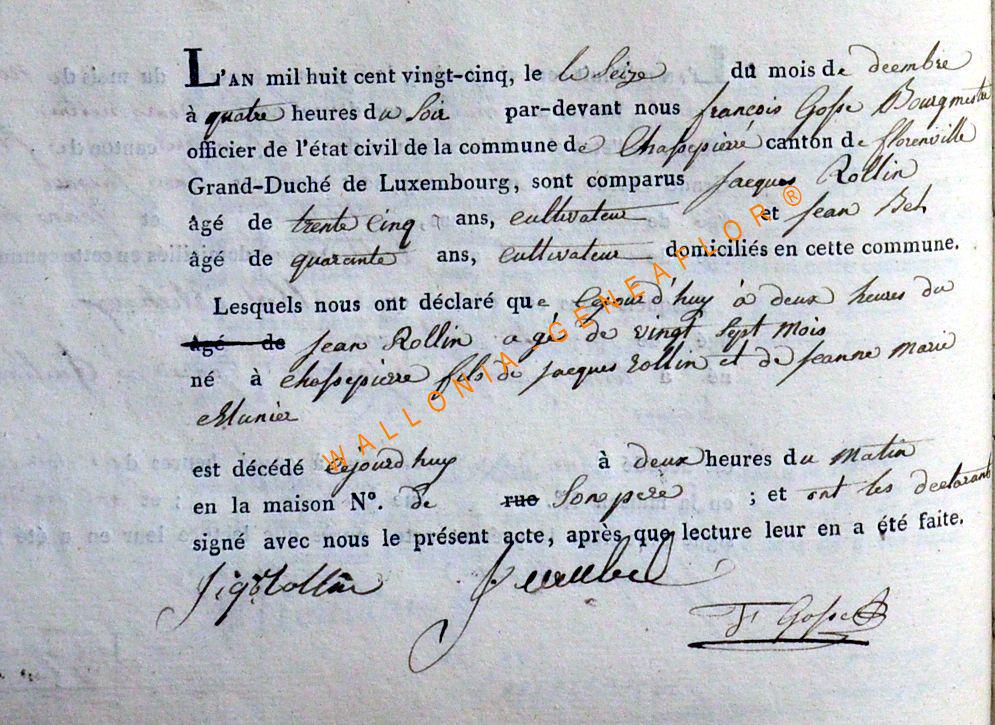 L'AN mil huit cent vingt-cinq, le le Seize du mois de decembre
à quatre heures du Soir par-devant nous françois Gosse Bourgmestre
officier de l'état civil de la commune de Chassepierre canton de florenville
Grand-Duché de Luxembourg, sont comparus Jacques Rollin
âgé de trente Cinq ans, cultivateur et Jean Bel
âgé de quarante ans, cultivateur domiciliés en cette commune.
Lesquels nous ont déclaré que Cejourd'huy à deux heures du
âgé de Jean Rollin agé de vingt Sept Mois
né à chassepierre fils de jacques rollin et de jeanne Marie
Munier
est décédé cejourdhuy à deux heures du Matin
en la maison N°. de rue Son pere ; et ont les declarants
signé avec nous le présent acte, après que lecture leur en a été faite.
F Gosse
WALLONIA GENEAFLOR ®